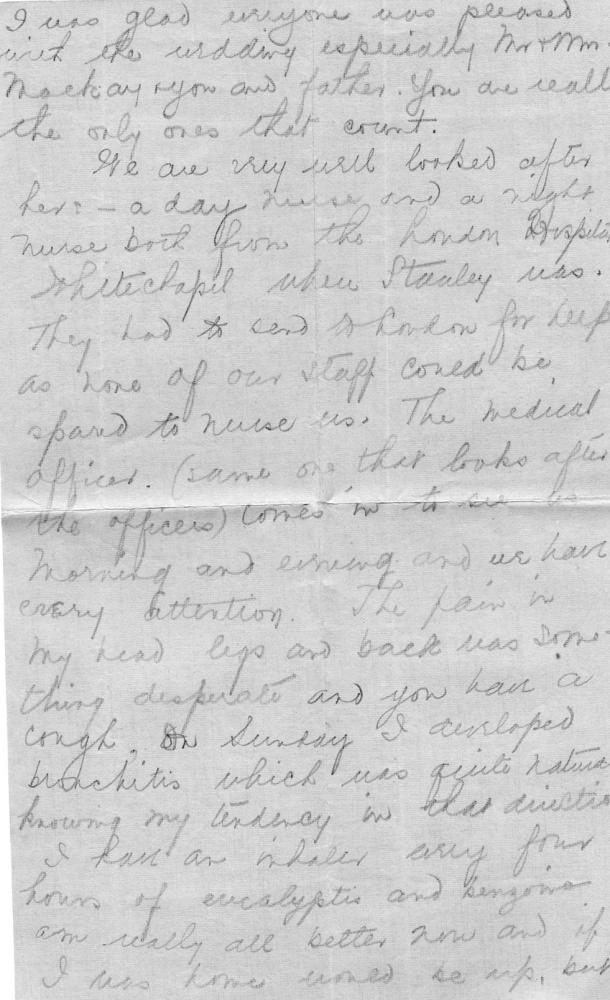 I was glad everyone was pleased
with the wedding especially Mr & Mrs.
Mackay & you and father. You are reall
the only ones that count.
We are very well looked after
here - a day nurse and a night
nurse both from the London Hospital
Whitechapel when Stanley was.
They had to send to London for help
as none of our staff could be
spared to nurse us. The medical
officer. (same one that looks after
the officers) comes in to see us
morning and evening and we have
every attention. The pain in
my head legs and back was some-
thing desperate and you have a
cough. On Sunday I developed
bronchitis which was quite natura
knowing my tendency in that directio
I have an inhaler every four
hours of eucalyptis and benzoine
am really all better now and if
I was home would be up, but